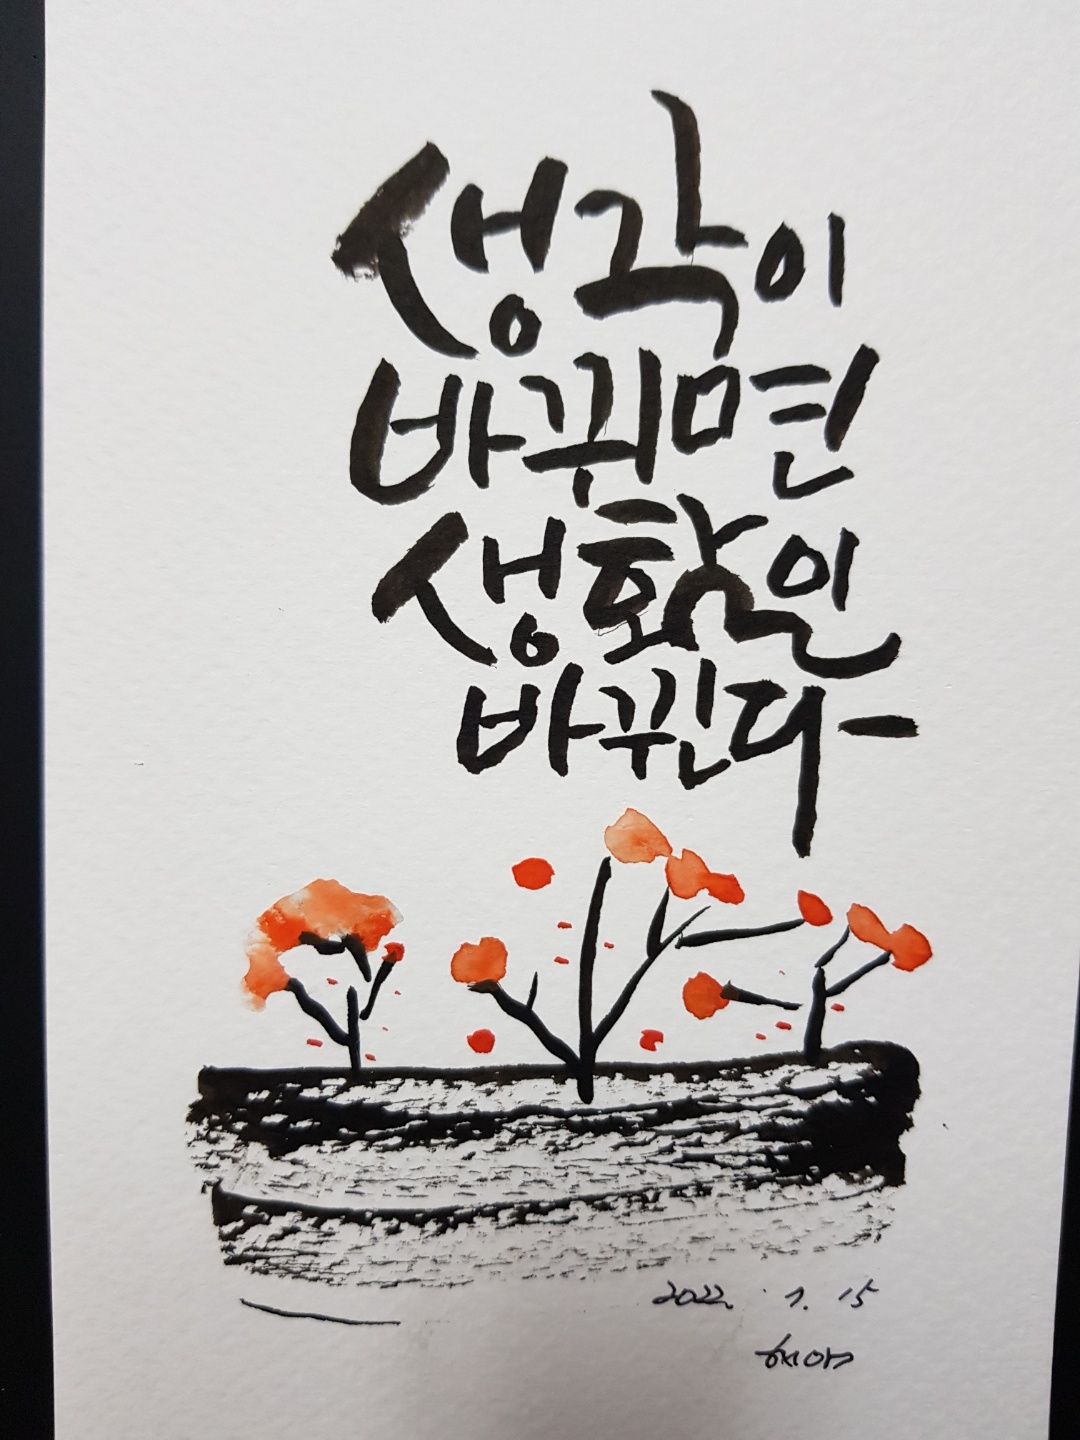 생각이
바뀌면
생활이
바뀐다
2022. 1. 15